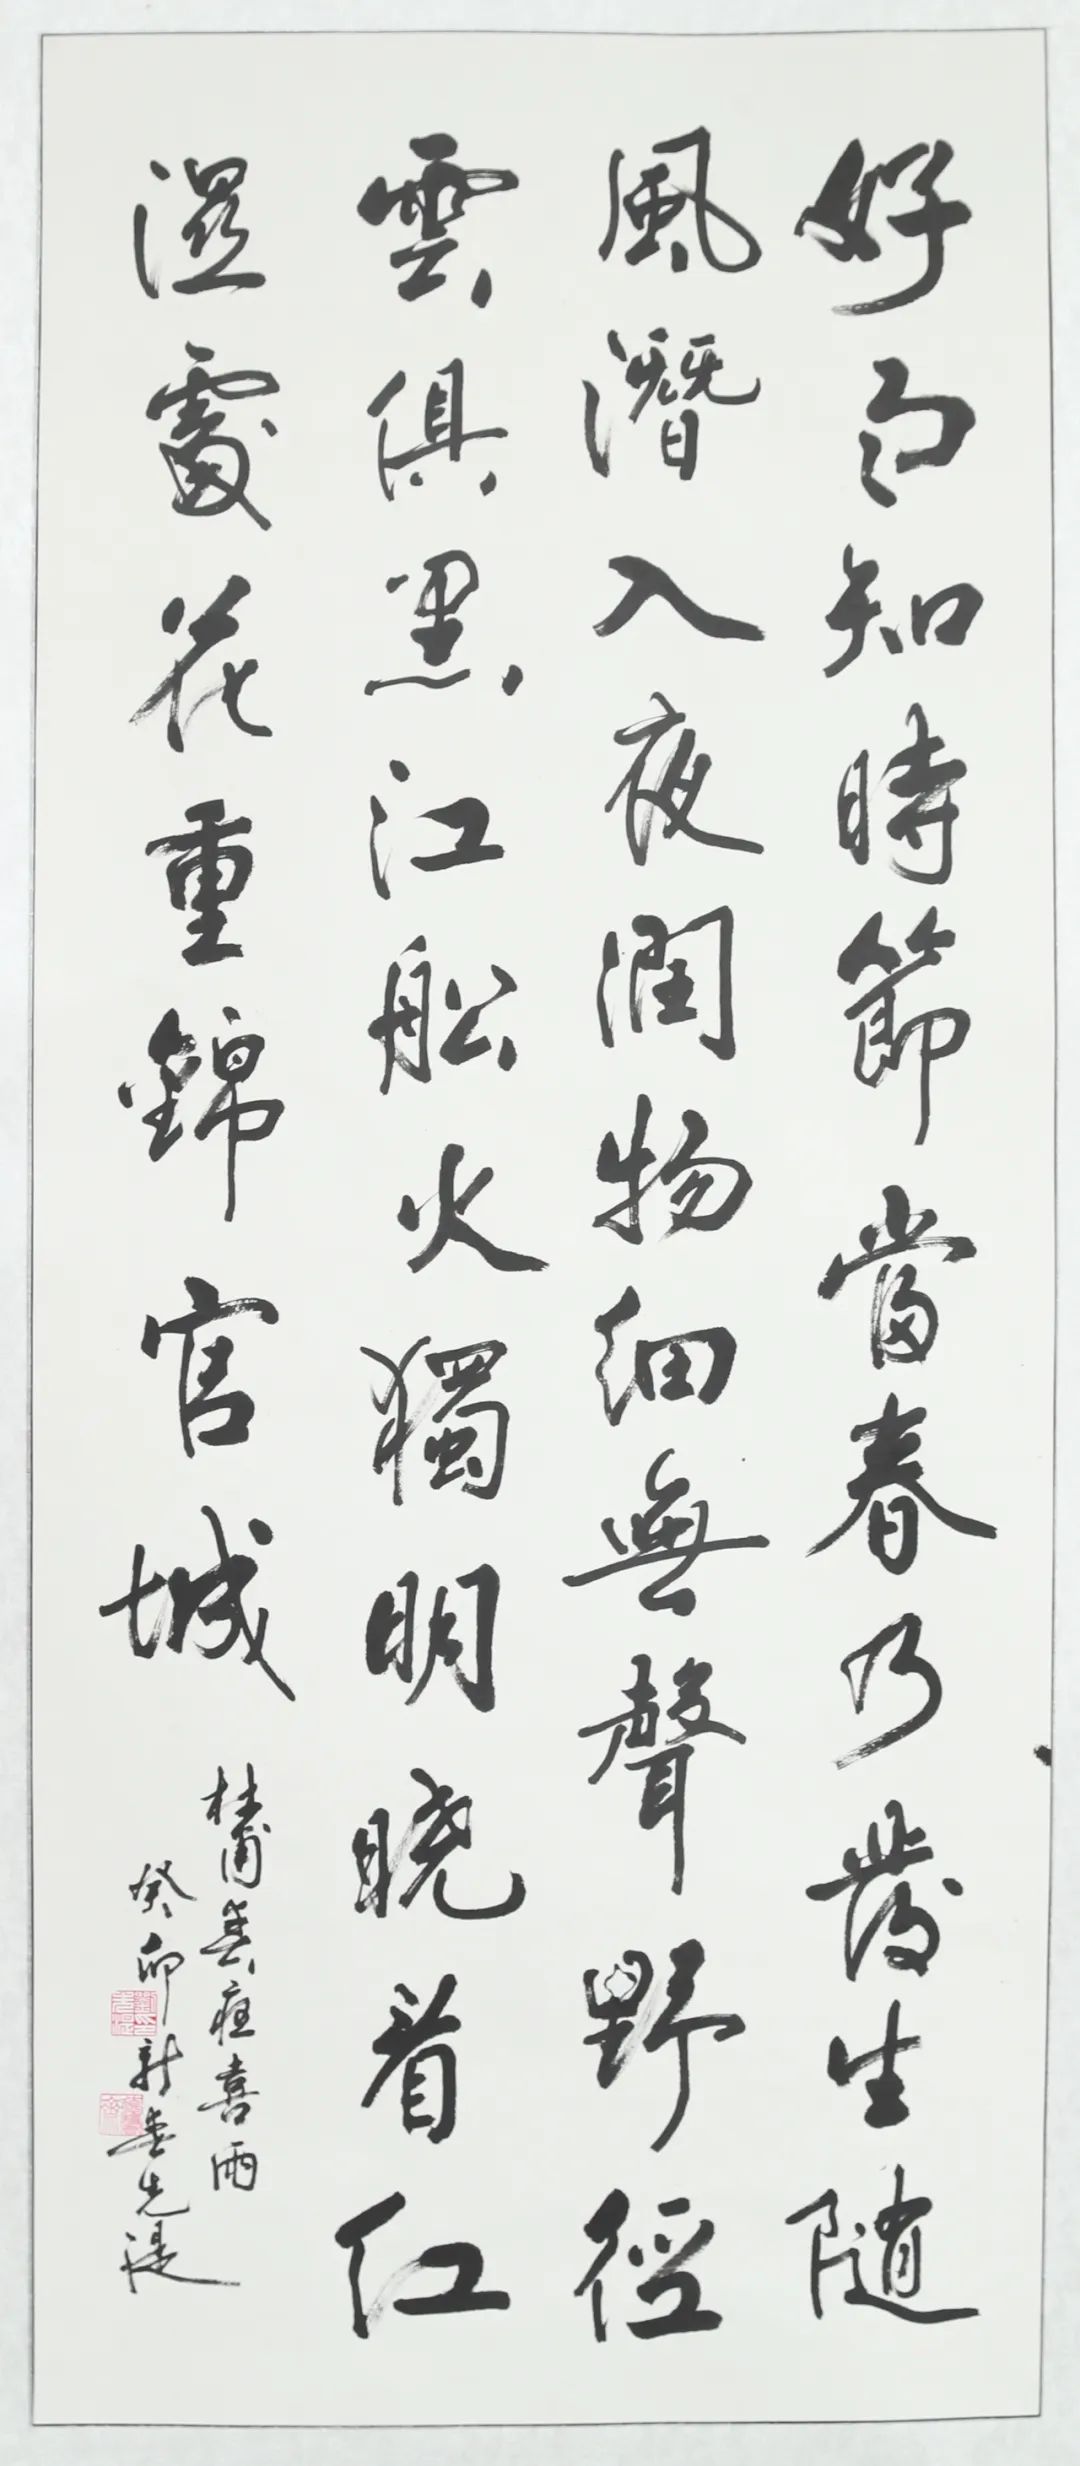 好雨知時節當春乃發生随
風潛入夜潤物細無聲野徑
雲俱黑江舩火獨明晓看紅
濕處花重錦官城
杜甫春夜喜雨
癸卯新春先湜